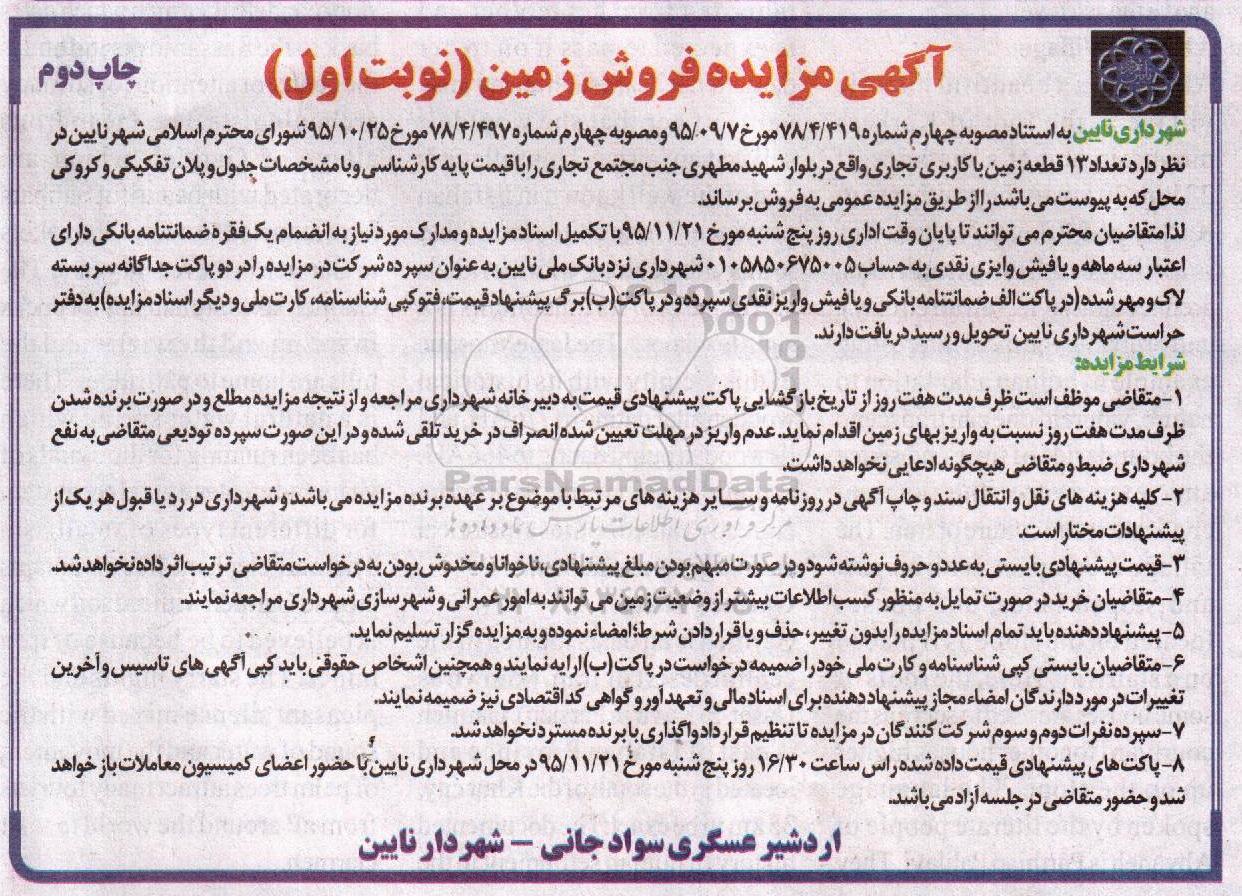 آگهی مزایده فروش زمین (نوبت اول)
چاپ دوم
شهرداری نایین به استناد مصوبه چهارم شماره ۷۸/۴/۴۱۹ مورخ ۹۵/۰۹/۷ و مصوبه چهارم شماره ۷۸/۴/۴۹۷ مورخ ۹۵/۱۰/۲۵ شورای محترم اسلامی شهر نایین در
نظر دارد تعداد ۱۳ قطعه زمین با کاربری تجاری واقع در بلوار شهید مطهری جنب مجتمع تجاری را با قیمت پایه کارشناسی و با مشخصات جدول و پلان تفکیکی و کروکی
محل که به پیوست می باشد را از طریق مزایده عمومی به فروش برساند.
لذا متقاضیان محترم می توانند تا پایان وقت اداری روز پنج شنبه مورخ ۹۵/۱۱/۲۱ با تکمیل اسناد مزایده و مدارک مورد نیاز به انضمام یک فقره ضمانتنامه بانکی دارای
اعتبار سه ماهه و یا فیش وایزی نقدی به حساب ۰۱۰۵۸۵۰۶۷۵۰۰۵ شهرداری نزد بانک ملی نایین به عنوان سپرده شرکت در مزایده را در دو پاکت جداگانه سر بسته
لاک و مهر شده (در پاکت الف ضمانتنامه بانکی و یا فیش واریز نقدی سپرده و در پاکت (ب) برگ پیشنهاد قیمت، فتوکپی شناسنامه، کارت ملی و دیگر اسناد مزایده) به دفتر
حراست شهرداری نایین تحویل و رسید دریافت دارند.
شرایط مزایده:
۱- متقاضی موظف است ظرف مدت هفت روز از تاریخ بازگشایی پاکت پیشنهادی قیمت به دبیرخانه شهرداری مراجعه و از نتیجه مزایده مطلع و در صورت برنده شدن
ظرف مدت هفت روز نسبت به واریز بهای زمین اقدام نماید. عدم واریز در مهلت تعیین شده انصراف در خرید تلقی شده و در این صورت سپرده تودیعی متقاضی به نفع
شهرداری ضبط و متقاضی هیچگونه ادعایی نخواهد داشت.
ParsNamadData
۲- کلیه هزینه های نقل و انتقال سند و چاپ آگهی در روزنامه و سایر هزینه های مرتبط با موضوع بر عهده برنده مزایده می باشد و شهرداری در رد یا قبول هر یک از
پیشنهادات مختار است.
۳- قیمت پیشنهادی بایستی به عدد و حروف نوشته شود و در صورت مبهم بودن مبلغ پیشنهادی، ناخوانا و مخدوش بودن به درخواست متقاضی ترتیب اثر داده نخواهد شد.
۴- متقاضیان خرید در صورت تمایل به منظور کسب اطلاعات بیشتر از وضعیت زمین می توانند به امور عمرانی و شهرسازی شهرداری مراجعه نمایند.
۵- پیشنهاد دهنده باید تمام اسناد مزایده را بدون تغییر، حذف و یا قرار دادن شرط؛ امضاء نموده و به مزایده گزار تسلیم نماید.
۶- متقاضیان بایستی کپی شناسنامه و کارت ملی خود را ضمیمه درخواست در پاکت (ب) ارایه نمایند و همچنین اشخاص حقوقی باید کپی آگهی های تاسیس و آخرین
تغییرات در مورد دارندگان امضاء مجاز پیشنهاد دهنده برای اسناد مالی و تعهدآور و گواهی کد اقتصادی نیز ضمیمه نمایند.
۷- سپرده نفرات دوم و سوم شرکت کنندگان در مزایده تا تنظیم قرارداد واگذاری با برنده مسترد نخواهد شد.
۸- پاکت های پیشنهادی قیمت داده شده راس ساعت ۱۶/۳۰ روز پنج شنبه مورخ ۹۵/۱۱/۲۱ در محل شهرداری نایین با حضور اعضای کمیسیون معاملات باز خواهد
شد و حضور متقاضی در جلسه آزاد می باشد.
اردشیر عسگری سواد جانی - شهردار نایین